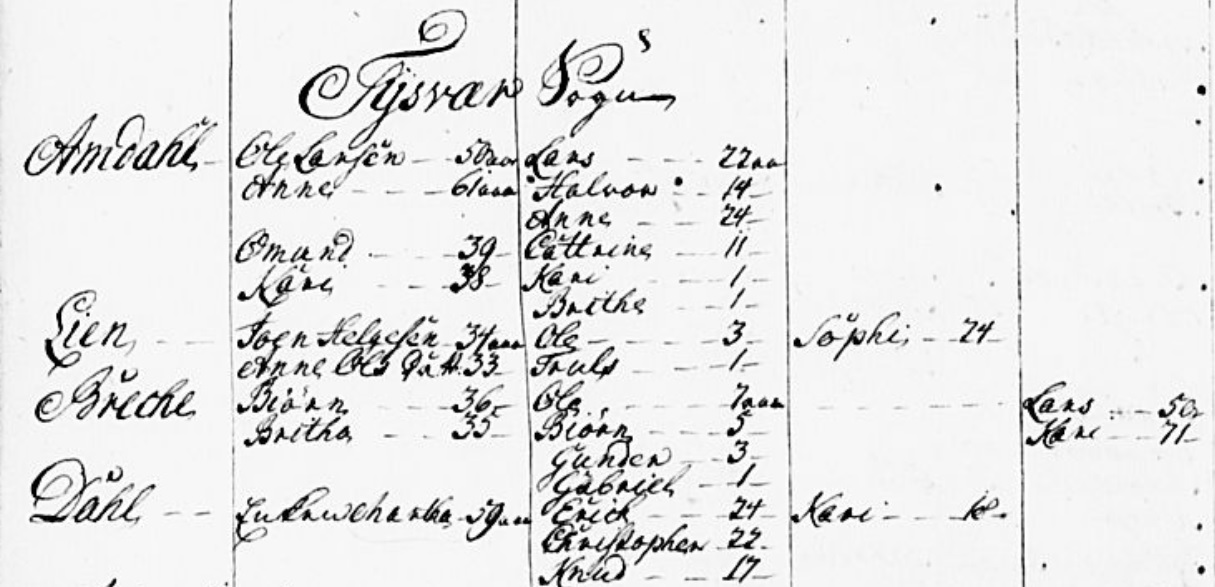 Tysvær Sogn
Amdahl Ole Larsen 50 aar Lars 22 aar
Anne 61 aar Halvor 14
Anne 24
Omund 39 Cattrine 11
Kari 38 Kari 1
Brithe 1
Lien Joen Helgesen 34 aar Ole 3 Sophi 24
Anne Ols Datt. 33 Truls 1
Breche Biörn 36 Ole 7 aar Lars 50
Britha 35 Biörn 5 Kari 71
Gunder 3
Gabriel 1
Dahl Martha 59 aar Erich 24 Kari 18
Christopher 22
Knud 17